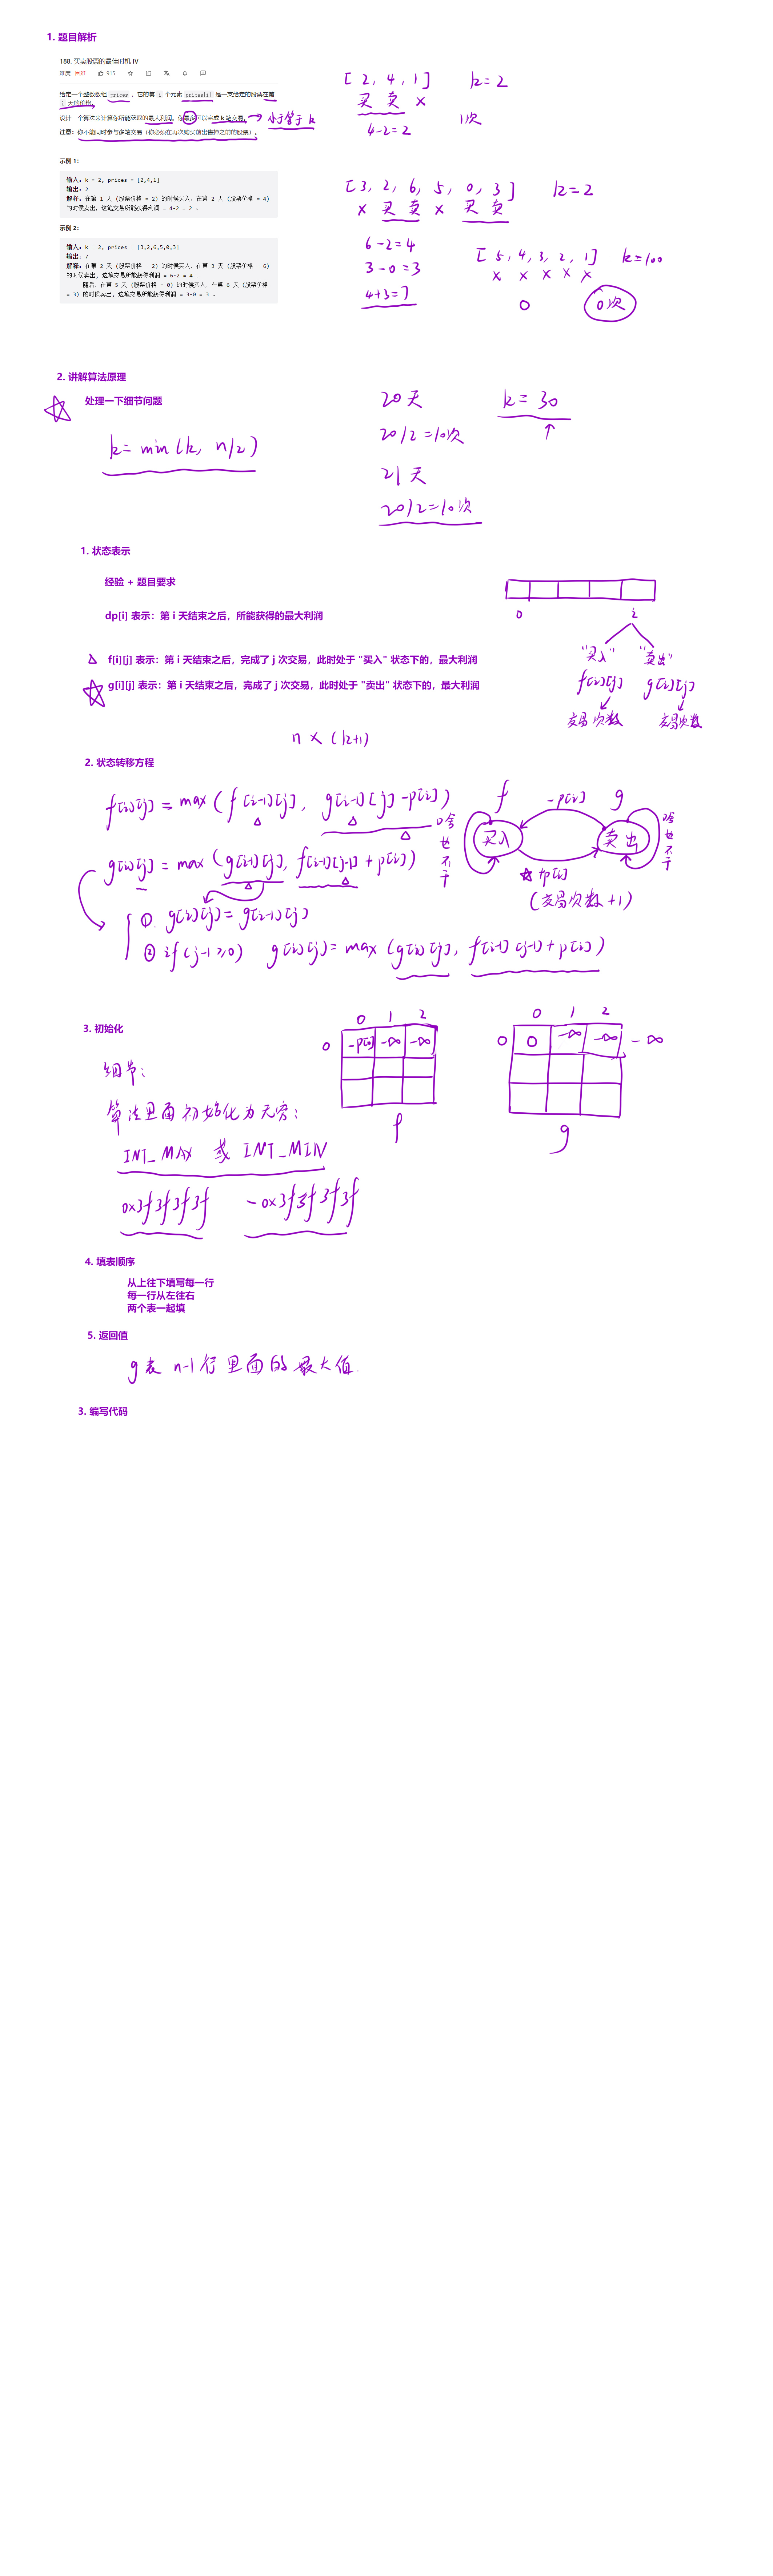 1. 题目解析
188. 买卖股票的最佳时机 IV
难度 困难 915
给定一个整数数组 prices ，它的第 i 个元素 prices[i] 是一支给定的股票在第
i 天的价格。
设计一个算法来计算你所能获取的最大利润。你最多可以完成 k 笔交易。
小于等于 k
注意：你不能同时参与多笔交易（你必须在再次购买前出售掉之前的股票）。
示例 1：
输入：k = 2, prices = [2,4,1]
输出：2
解释：在第 1 天 (股票价格 = 2) 的时候买入，在第 2 天 (股票价格 = 4)
的时候卖出，这笔交易所能获得利润 = 4-2 = 2 。
示例 2：
输入：k = 2, prices = [3,2,6,5,0,3]
输出：7
解释：在第 2 天 (股票价格 = 2) 的时候买入，在第 3 天 (股票价格 = 6)
的时候卖出, 这笔交易所能获得利润 = 6-2 = 4 。
随后，在第 5 天 (股票价格 = 0) 的时候买入，在第 6 天 (股票价格
= 3) 的时候卖出, 这笔交易所能获得利润 = 3-0 = 3 。
[ 2, 4, 1 ] k = 2
买 卖 ×
4-2=2 1次
[ 3, 2, 6, 5, 0, 3 ] k=2
× 买 卖 × 买 卖
6-2=4
3-0=3
4+3=7
[ 5, 4, 3, 2, 1 ] k=100
× × × × ×
0 0次
2. 讲解算法原理
处理一下细节问题
k = min(k, n/2)
20天 k = 30
20/2=10次
21天
20/2=10次
1. 状态表示
经验 + 题目要求
dp[i] 表示：第 i 天结束之后，所能获得的最大利润
f[i][j] 表示：第 i 天结束之后，完成了 j 次交易，此时处于 "买入" 状态下的，最大利润
g[i][j] 表示：第 i 天结束之后，完成了 j 次交易，此时处于 "卖出" 状态下的，最大利润
0 i
"买入" "卖出"
f[i][j] g[i][j]
交易次数 交易次数
n × (k+1)
2. 状态转移方程
f[i][j] = max(f[i-1][j], g[i-1][j]-p[i])
g[i][j] = max(g[i-1][j], f[i-1][j-1]+p[i])
① g[i][j] = g[i-1][j]
② if(j-1≥0) g[i][j] = max(g[i][j], f[i-1][j-1]+p[i])
f -p[i] g
啥也不干 买入 卖出 啥也不干
+p[i]
(交易次数+1)
3. 初始化
细节：
算法里面初始化为无穷：
INT_MAX 或 INT_MIN
0x3f3f3f3f -0x3f3f3f3f
0 1 2
0 -p[0] -∞ -∞
f
0 1 2
0 0 -∞ -∞ -∞
g
4. 填表顺序
从上往下填写每一行
每一行从左往右
两个表一起填
5. 返回值
g表 n-1行里面的最大值.
3. 编写代码